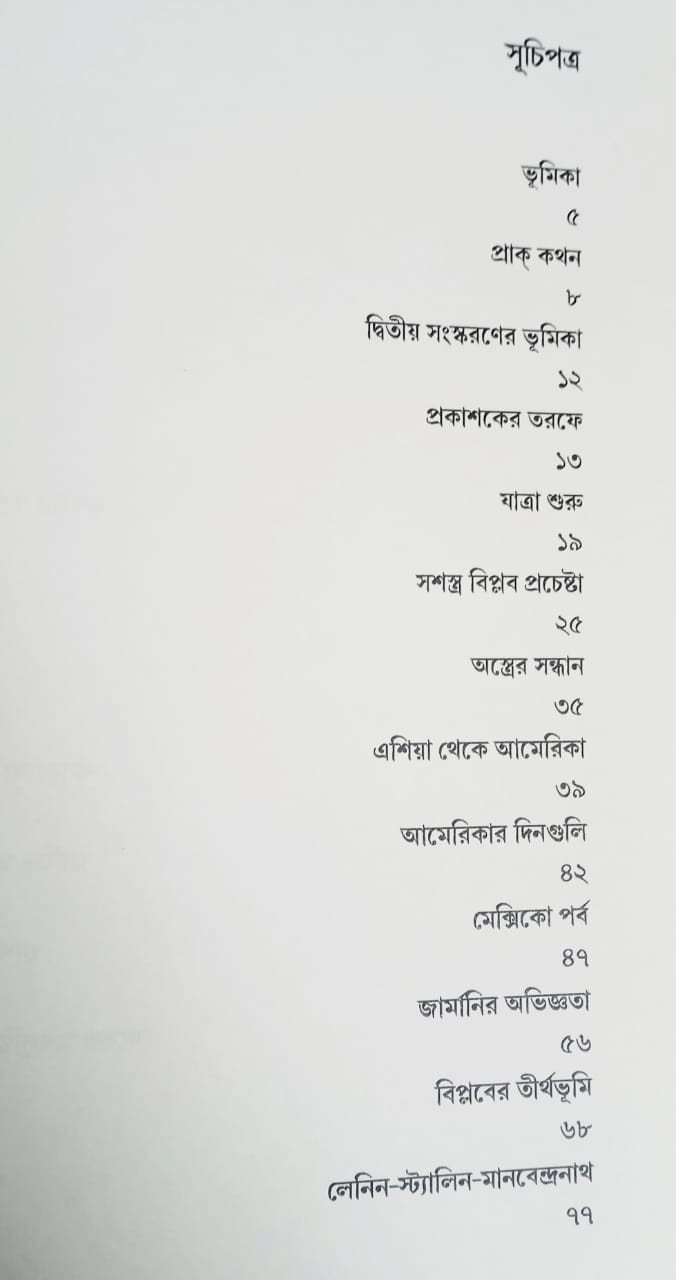 সূচিপত্র
ভূমিকা
৫
প্রাক্ কথন
৮
দ্বিতীয় সংস্করণের ভূমিকা
১২
প্রকাশকের তরফে
১৩
যাত্রা শুরু
১৯
সশস্ত্র বিপ্লব প্রচেষ্টা
২৫
অস্ত্রের সন্ধান
৩৫
এশিয়া থেকে আমেরিকা
৩৯
আমেরিকার দিনগুলি
৪২
মেক্সিকো পর্ব
৪৭
জার্মানির অভিজ্ঞতা
৫৬
বিপ্লবের তীর্থভূমি
৬৮
লেনিন-স্ট্যালিন-মানবেন্দ্রনাথ
৭৭